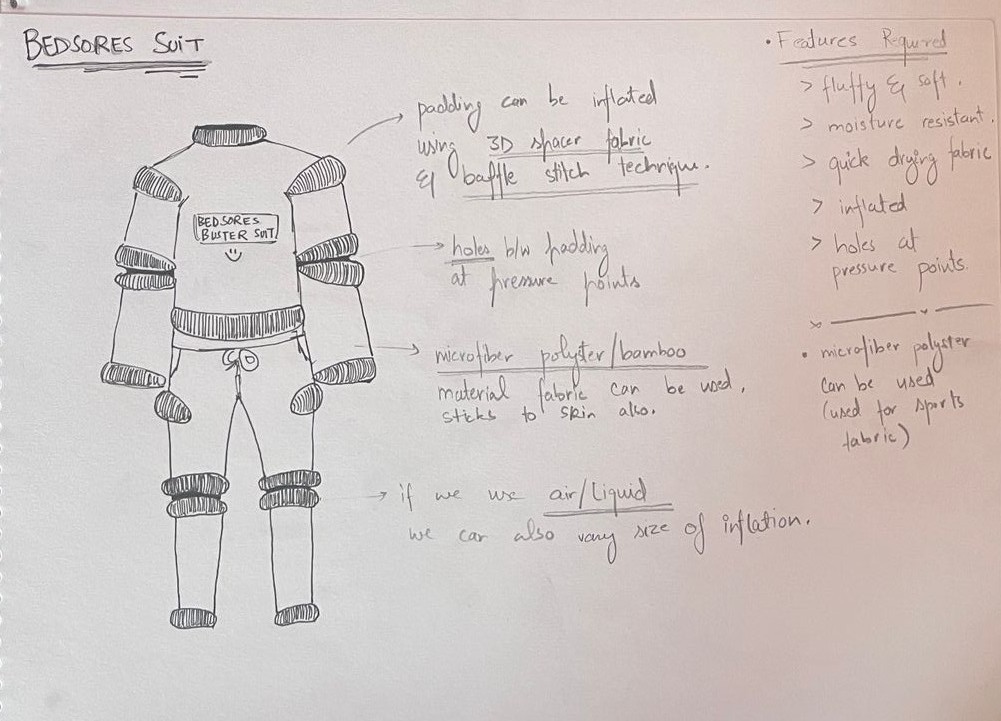 BEDSORES SUIT
padding can be inflated
using 3D spacer fabric
& baffle stitch technique.
BEDSORES
BUSTER SUIT
holes b/w padding
at pressure points
microfiber polyster/bamboo
material fabric can be used,
sticks to skin also.
→ if we use air/liquid
we can also vary size of inflation.
• Features Required
> fluffy & soft.
> moisture resistant.
> quick drying fabric
> inflated
> holes at
pressure points.
• microfiber polyster
can be used
(used for sports
fabric)